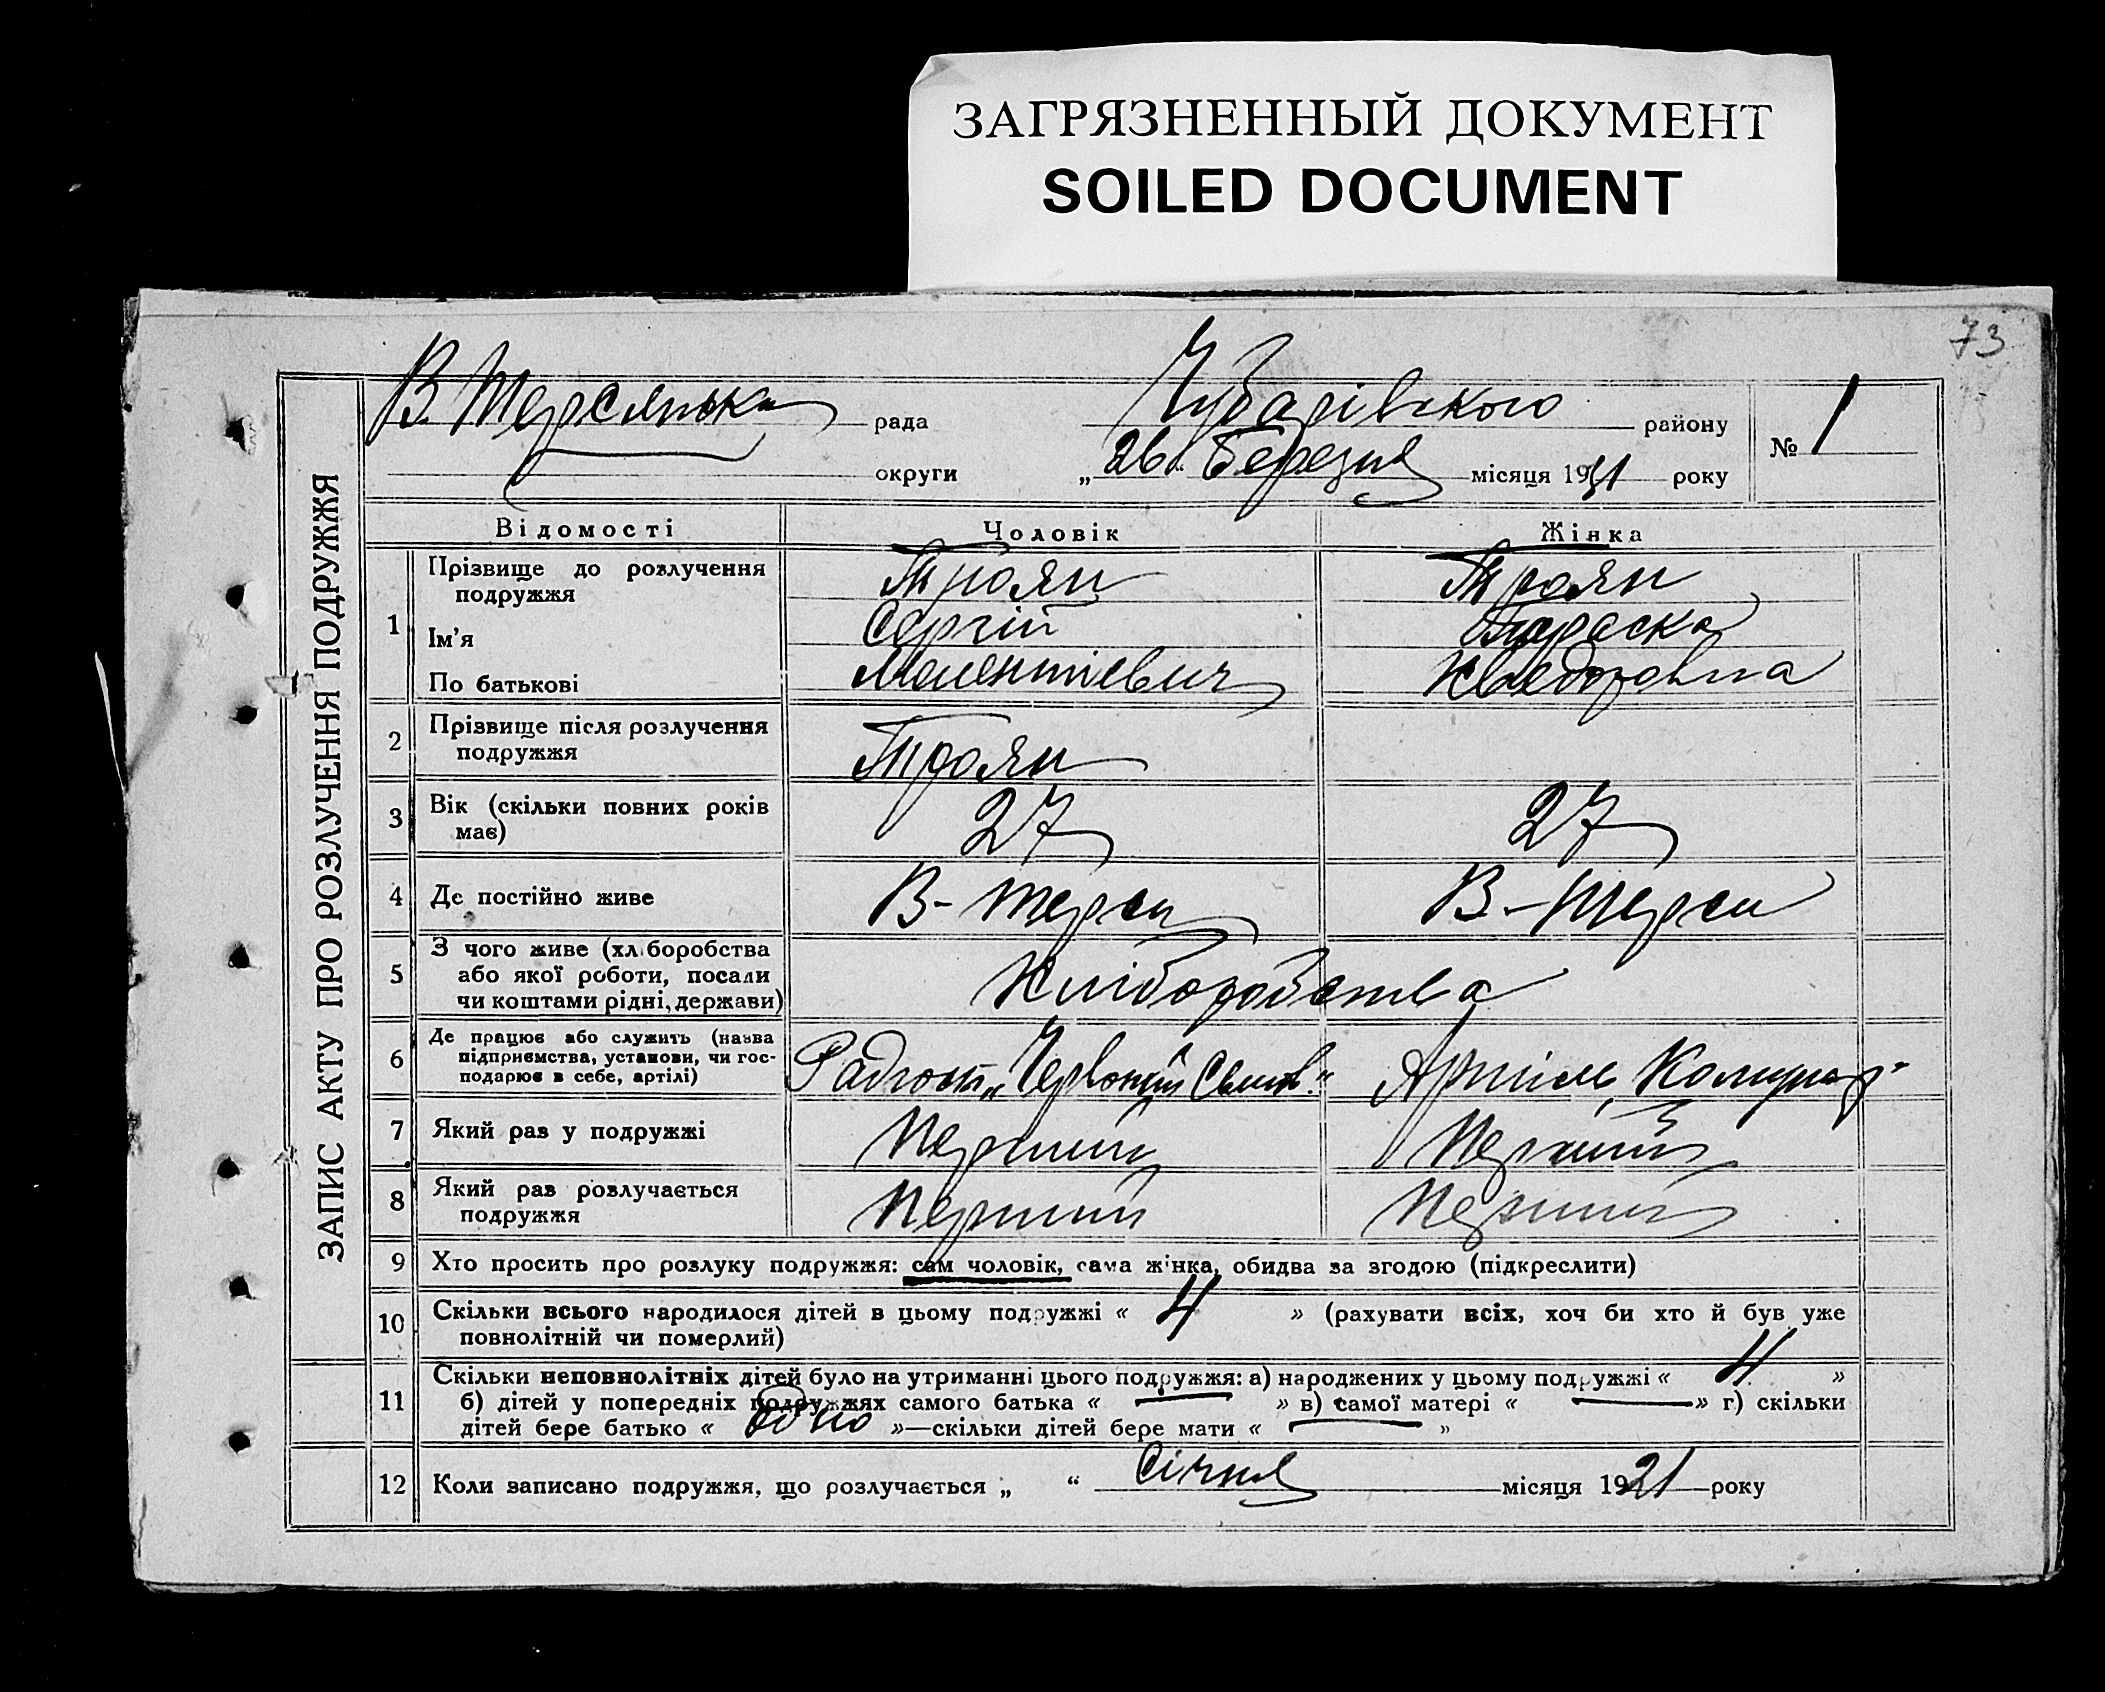 ЗАГРЯЗНЕННЫЙ ДОКУМЕНТ
SOILED DOCUMENT
73
ЗАПИС АКТУ ПРО РОЗЛУЧЕННЯ ПОДРУЖЖЯ
В. Терсянська рада Чубарівського району № 1
округи „26“ Березня місяця 1931 року
Відомості Чоловік Жінка
1 Прізвище до розлучення подружжя Троян Троян
Ім'я Сергій Параска
По батькові Мелентієвич
2 Прізвище після розлучення подружжя Троян
3 Вік (скільки повних років має) 27 27
4 Де постійно живе В-Терси В.-Терси
5 З чого живе (хліборобства або якої роботи, посади чи коштами рідні, держави) Хліборобства
6 Де працює або служить (назва підприємства, установи, чи господарює в себе, артілі) Радгосп „Червоний “ Артіль
7 Який раз у подружжі Перший Перший
8 Який раз розлучається подружжя Перший Перший
9 Хто просить про розлуку подружжя: сам чоловік, сама жінка, обидва за згодою (підкреслити)
10 Скільки всього народилося дітей в цьому подружжі « 4 » (рахувати всіх, хоч би хто й був уже
повнолітній чи померлий)
11 Скільки неповнолітніх дітей було на утриманні цього подружжя: а) народжених у цьому подружжі « 4 »
б) дітей у попередніх подружжях самого батька « — » в) самої матері « — » г) скільки
дітей бере батько « одно »—скільки дітей бере мати « — »
12 Коли записано подружжя, що розлучається „ “ Січня місяця 1921 року